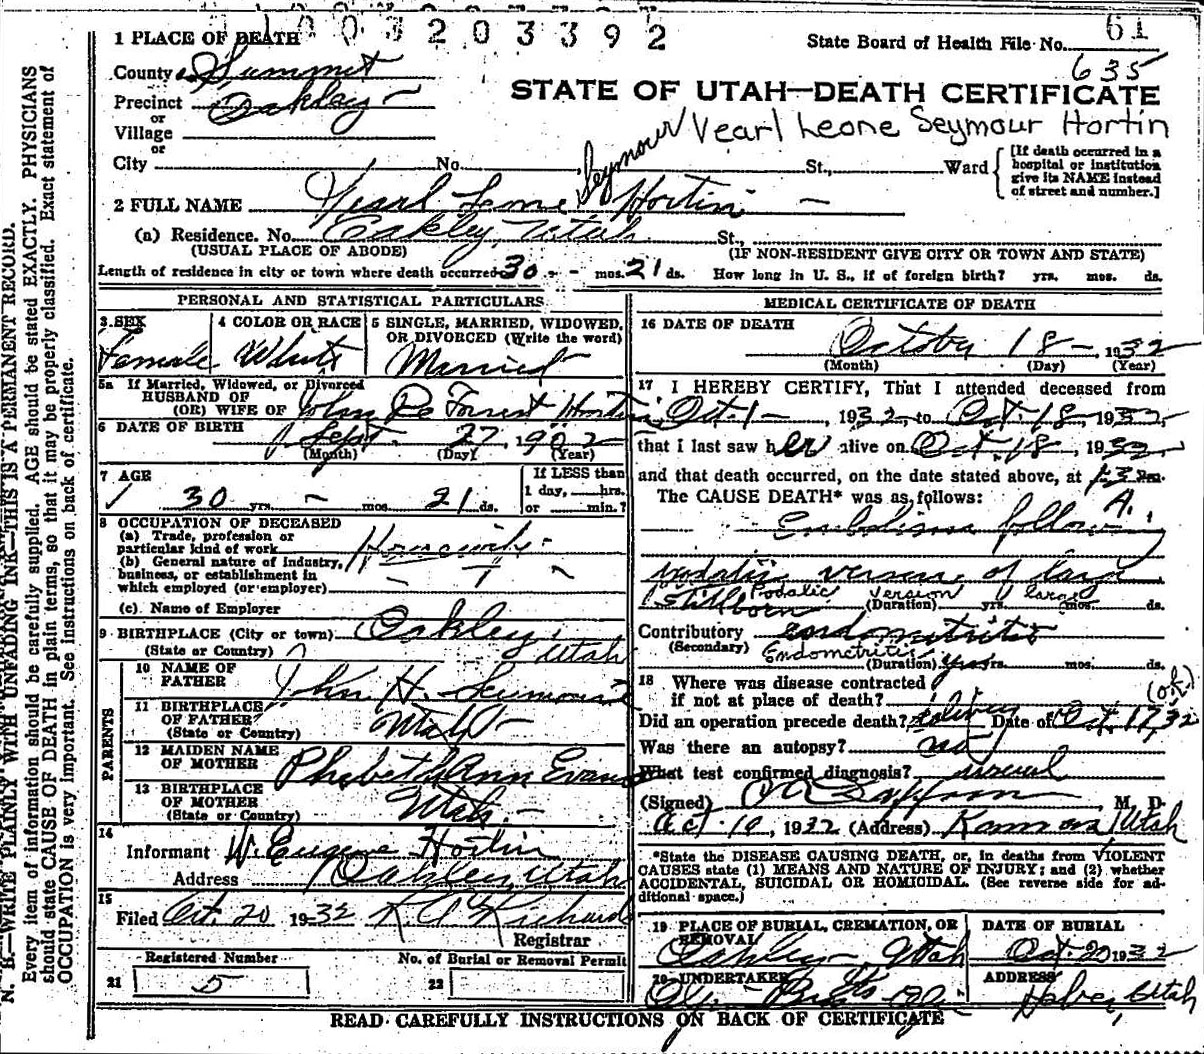 1003203392
61
1 PLACE OF DEATH
State Board of Health File No.
635
County Summit
STATE OF UTAH—DEATH CERTIFICATE
Precinct Oakley
or
Village
Seymour Vearl Leone Seymour Hortin
or
City No. St., Ward
[If death occurred in a
hospital or institution
give its NAME instead
of street and number.]
2 FULL NAME Vearl Leone Hortin
(a) Residence. No. Oakley, Utah St.,
(USUAL PLACE OF ABODE) (IF NON-RESIDENT GIVE CITY OR TOWN AND STATE)
Length of residence in city or town where death occurred 30 - mos. 21 ds. How long in U. S., if of foreign birth? yrs. mos. ds.
PERSONAL AND STATISTICAL PARTICULARS
3 SEX
Female
4 COLOR OR RACE
White
5 SINGLE, MARRIED, WIDOWED,
OR DIVORCED (Write the word)
Married
5a If Married, Widowed, or Divorced
HUSBAND OF
(OR) WIFE OF John De Forrest Hortin
6 DATE OF BIRTH
Sept. 27, 1902
(Month) (Day) (Year)
7 AGE
30 yrs. - mos. 21 ds.
If LESS than
1 day, hrs.
or min.?
8 OCCUPATION OF DECEASED
(a) Trade, profession or
particular kind of work Housewife
(b) General nature of industry,
business, or establishment in
which employed (or employer)
(c) Name of Employer
9 BIRTHPLACE (City or town) Oakley
(State or Country) Utah
PARENTS
10 NAME OF
FATHER John H. Seymour
11 BIRTHPLACE
OF FATHER
(State or Country) Utah
12 MAIDEN NAME
OF MOTHER Ann Evans
13 BIRTHPLACE
OF MOTHER
(State or Country) Utah
14
Informant W. Eugene Hortin
Address Oakley, Utah
15
Filed Oct. 20 1932
Registrar
Registered Number
21 5
No. of Burial or Removal Permit
22
MEDICAL CERTIFICATE OF DEATH
16 DATE OF DEATH
October 18 - 1932
(Month) (Day) (Year)
17 I HEREBY CERTIFY, That I attended deceased from
Oct. 1 - 1932, to Oct. 18, 1932
that I last saw her alive on Oct. 18, 1932
and that death occurred, on the date stated above, at
The CAUSE DEATH* was as follows:
Embolism follow
podalic version of large
Stillborn Podalic Version large
(Duration) yrs. mos. ds.
Contributory endometritis
(Secondary) Endometritis
(Duration) yrs. mos. ds.
18 Where was disease contracted
if not at place of death?
(o.k.)
Did an operation precede death? delivery Date of Oct. 17, 32
Was there an autopsy? no
What test confirmed diagnosis? usual
(Signed) M. D.
Oct. 1932 (Address) Kamas Utah
*State the DISEASE CAUSING DEATH, or, in deaths from VIOLENT
CAUSES state (1) MEANS AND NATURE OF INJURY; and (2) whether
ACCIDENTAL, SUICIDAL OR HOMICIDAL. (See reverse side for ad-
ditional space.)
19 PLACE OF BURIAL, CREMATION, OR
REMOVAL
Oakley, Utah
DATE OF BURIAL
Oct. 20 1932
20 UNDERTAKER
ADDRESS
Heber, Utah
READ CAREFULLY INSTRUCTIONS ON BACK OF CERTIFICATE
N. B.—WRITE PLAINLY WITH UNFADING INK—THIS IS A PERMANENT RECORD.
Every item of information should be carefully supplied. AGE should be stated EXACTLY. PHYSICIANS
should state CAUSE OF DEATH in plain terms, so that it may be properly classified. Exact statement of
OCCUPATION is very important. See instructions on back of certificate.